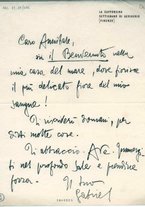 LA CAPPONCINA
SETTIGNANO DI DESIDERIO
(FIRENZE)
Caro Annibale,
su il Benvenuto nella
mia casa del mare, dove fiorisce
il più delicato fiore del mio
sangue!
Ti manderò domani, per
dirti molte cose.
Ti abbraccio.
ti nel profondo Sale e prendine
forza.
Il tuo
Gabriel